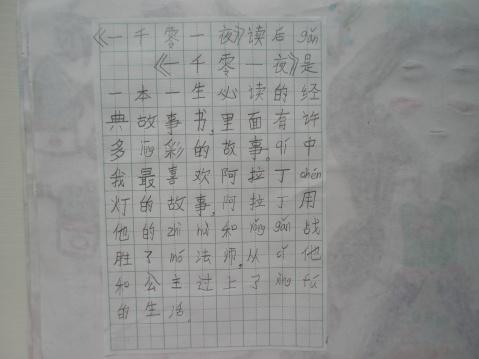 《一千零一夜》读后gǎn
《一千零一夜》是
一本一生必读的经
典故事书,里面有许
多jīng彩的故事。qí中
我最喜欢阿拉丁shén
灯的故事,阿拉丁用
他的zhì huì和yǒng gǎn战
胜了mó法师,从cǐ他
和公主过上了xìng fú
的生活。